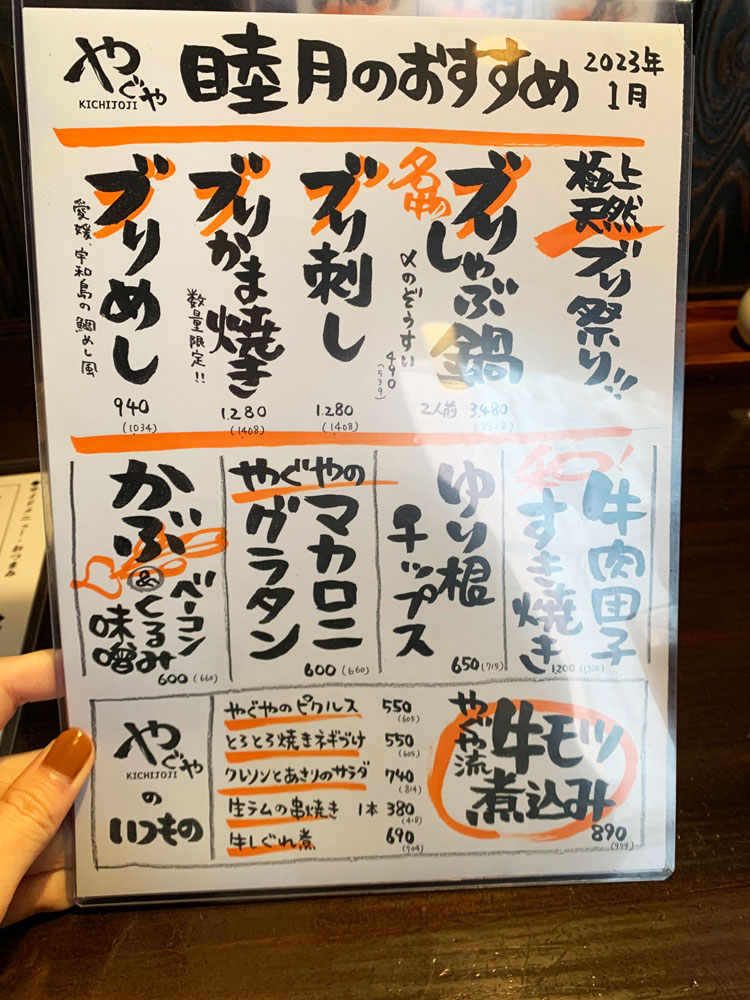 やぐや
KICHIJOJI
睦月のおすすめ
2023年
1月
極上
天然
ブリ祭り!!
名物
ブリしゃぶ鍋
2人前 3,480
〆のぞうすい 490
(539)
ブリ刺し
1,280
(1408)
ブリかま焼き
数量限定!!
1,280
(1408)
ブリめし
愛媛、宇和島の鯛めし風
940
(1034)
牛肉団子
すき焼き
1,200
ゆり根
チップス
650(715)
やぐやの
マカロニ
グラタン
600(660)
かぶ
&
ベーコン
くるみ
味噌
600(660)
やぐや
KICHIJOJI
の
いつもの
やぐやのピクルス 550
(605)
とろとろ焼きネギづけ 550
(605)
クレソンとあさりのサラダ 740
(814)
生ラムの串焼き 1本 380
(418)
牛しぐれ煮 690
やぐや流
牛モツ
煮込み
890
(979)